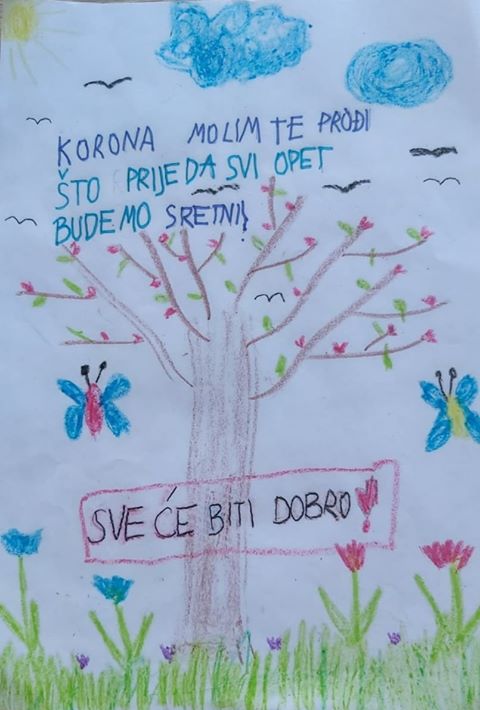 KORONA MOLIM TE PROĐI
ŠTO PRIJE DA SVI OPET
BUDEMO SRETNI!
SVE ĆE BITI DOBRO!